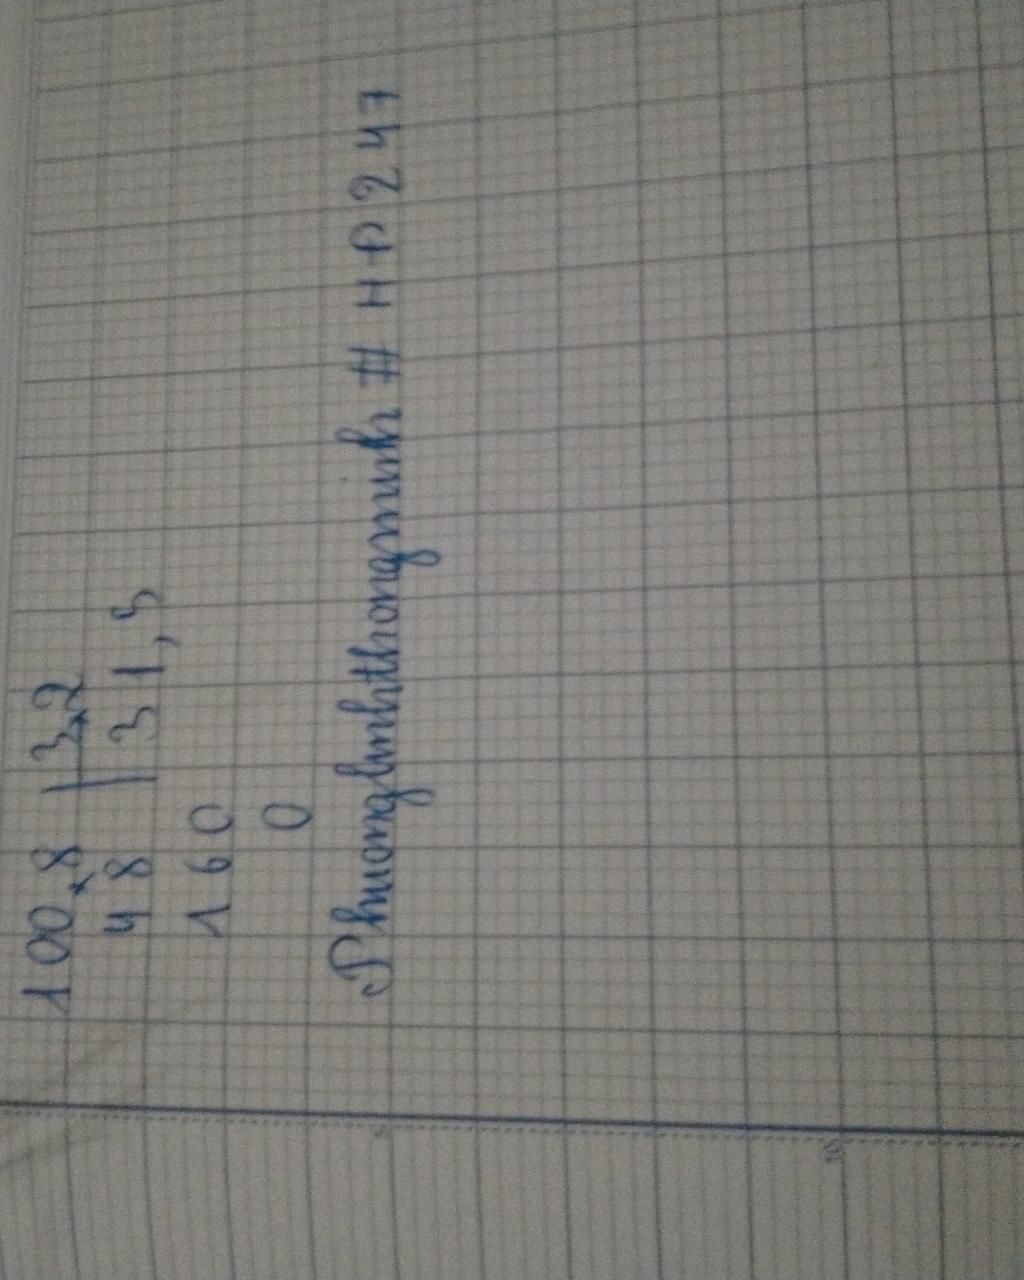 100,8 | 3,2
48 | 31,5
160
0
Phuonglinhthongminh # HD247